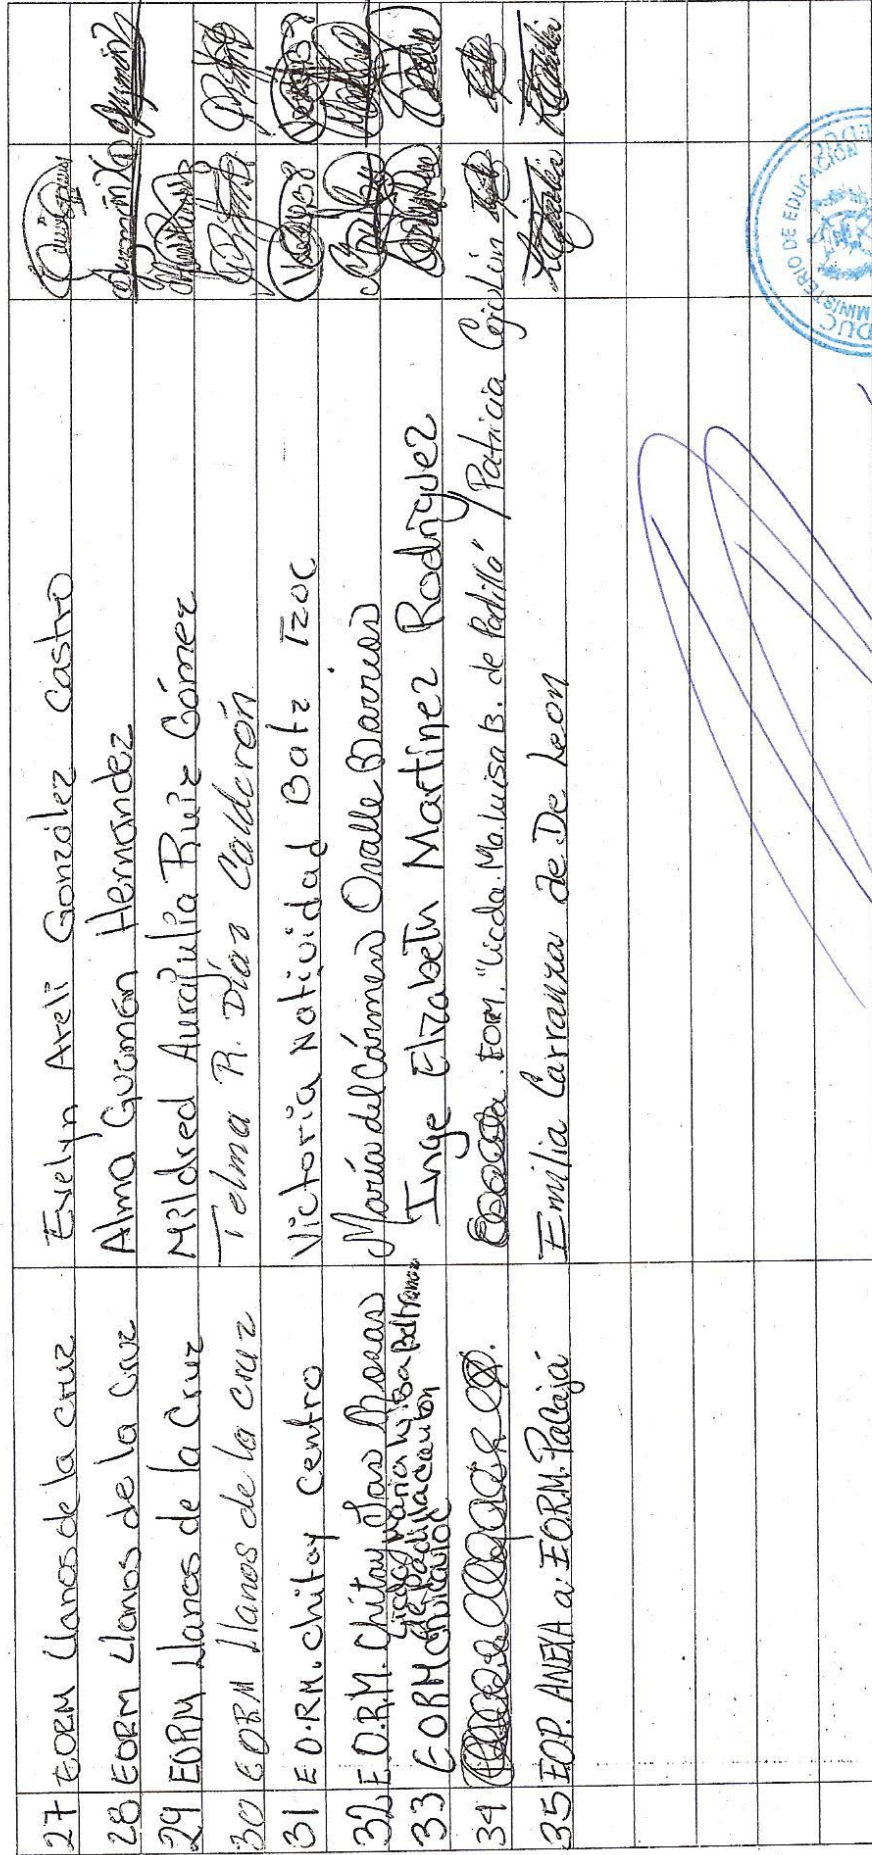 27 EORM Llanos de la Cruz Evelyn Areli González Castro
28 EORM Llanos de la Cruz Alma Guzmán Hernández
29 EORM Llanos de la Cruz Mildred Aurajulia Ruiz Gómez
30 EORM Llanos de la Cruz Telma R. Díaz Calderón
31 E O.RM. chitay Centro Victoria Natividad Batz Tzoc
32 E.O.R.M. Chitay Las Rosas María del Cármen Ovalle Barrios
33 EORM Licda María Luisa Beltranena de Padilla cantón Inge Elizabeth Martínez Rodríguez
34 EORM. "Licda. Ma. Luisa B. de Padilla" / Patricia
35 EOP. ANEXA a: EORM. Pacajá Emilia Carranza de De Leon
MINISTERIO DE EDUCACIÓN